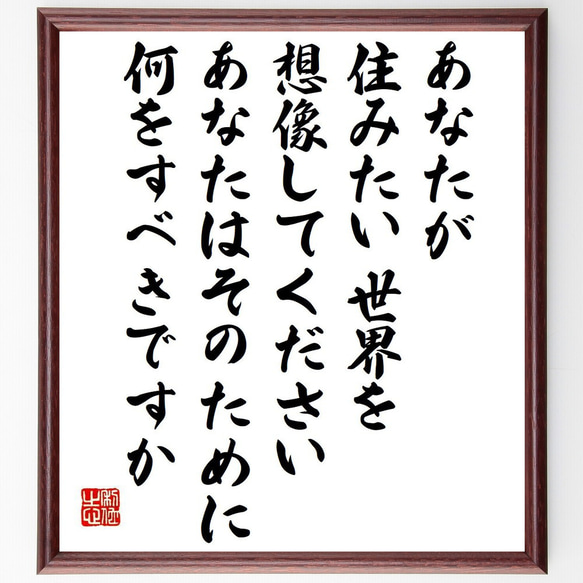 あなたが
住みたい 世界を
想像してください
あなたはそのために
何をすべきですか